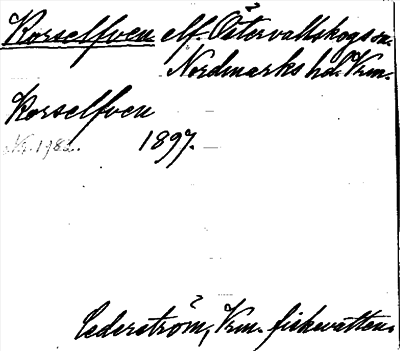 Korselfven elf. Östervallskogs sn.
Nordmarks hd. Vrm.
Korselfven
1897.
Cederström, Vrm. fiskevatten.